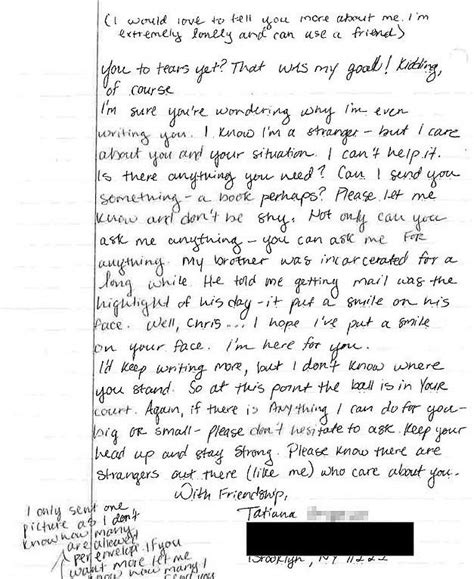 (I would love to tell you more about me. I'm
extremely lonely and can use a friend)
you to tears yet? That was my goal! Kidding,
of course
I'm sure you're wondering why I'm even
writing you. I know I'm a stranger - but I care
about you and your situation. I can't help it.
Is there anything you need? Can I send you
something - a book perhaps? Please let me
know and don't be shy. Not only can you
ask me anything - you can ask me FOR
anything. My brother was incarcerated for a
long while. He told me getting mail was the
highlight of his day - it put a smile on his
face. Well, Chris... I hope I've put a smile
on your face. I'm here for you.
I'd keep writing more, but I don't know where
you stand. So at this point the ball is in your
court. Again, if there is Anything I can do for you-
big OR small - please don't hesitate to ask. Keep your
head up and stay strong. Please know there are
strangers out there (like me) who care about you.
With Friendship,
Tatiana
Brooklyn, NY
I only sent one
picture as I don't
know how many
are allowed
per envelope. If you
want more let me
know how many I